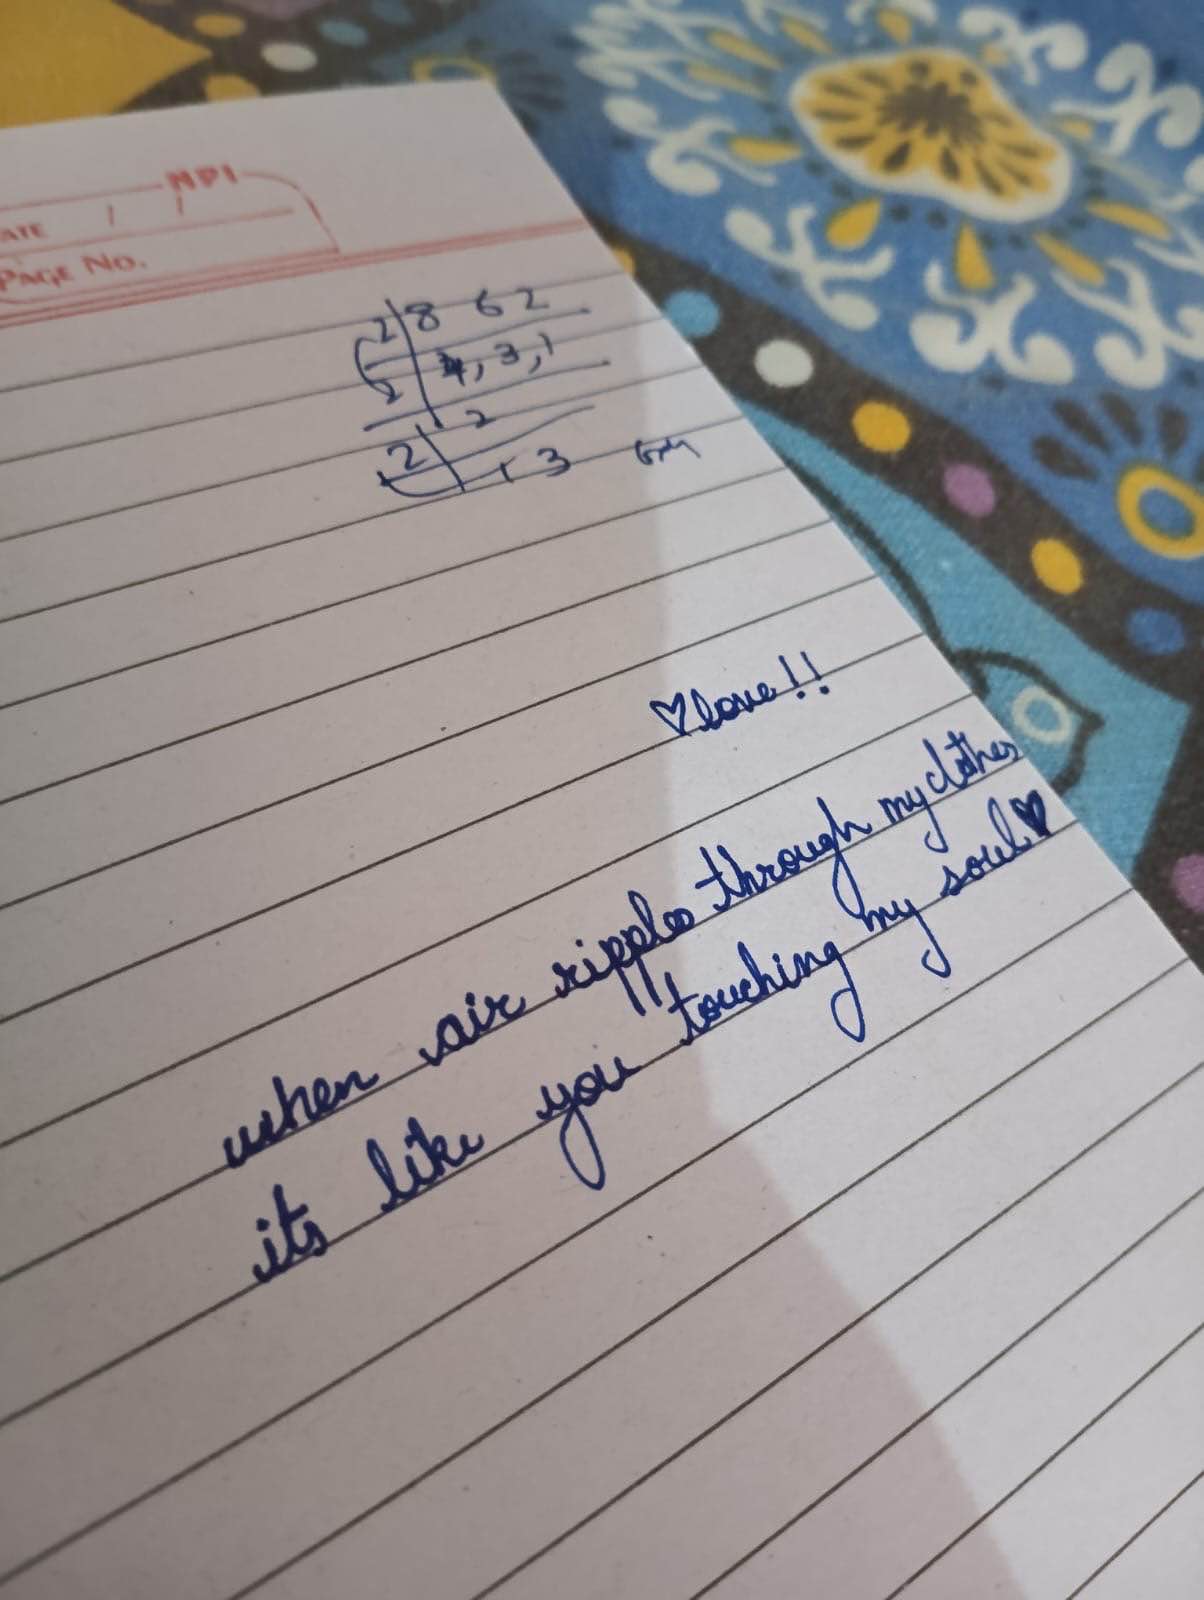 MPI
ATE / /
PAGE NO.
2 8 6 2
2 4, 3, 1
2
2 1 3
♡love!!
when air ripples through my clothes
its like you touching my soul♥